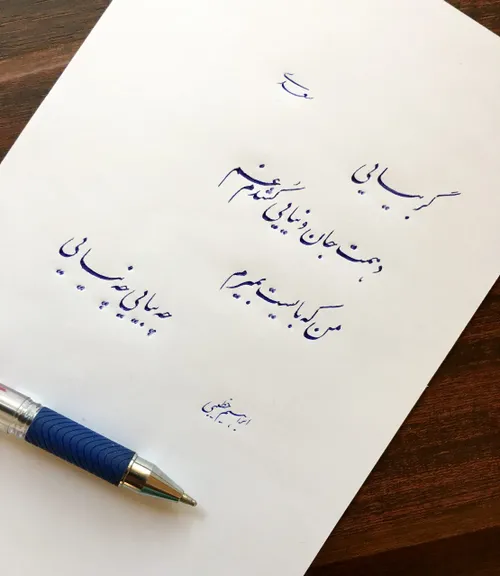 سعدی
گر بیایی
دهمت جان و نیایی کُشدم غم
من که بایست بمیرم
چه بیایی چه نیایی
ابراهیم خطیبی